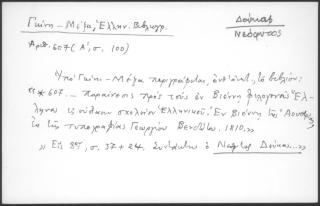 Γκίνη - Μέξα, Ἑλλην. Βιβλιογρ.
Δούκας
Νεόφυτος
Ἀριθ. 607 (Α', σ. 100)
Ὑπὸ Γκίνη - Μέξα περιγράφεται, ἀνθ' ἀντ., τὸ βιβλίον:
"* 607. - Παραίνεσις πρὸς τοὺς ἐν Βιέννῃ φιλογενεῖς Ἕλ-
ληνας εἰς σύστασιν σχολείου Ἑλληνικοῦ. Ἐν Βιέννῃ τῆς Ἀουστρίας,
Ἐκ τῆς τυπογραφίας Γεωργίου Βενδότου. 1810.»
" Εἰς 8ον, σ. 37 + 24. Συντάκτης ὁ Νεόφυτος Δούκας..."